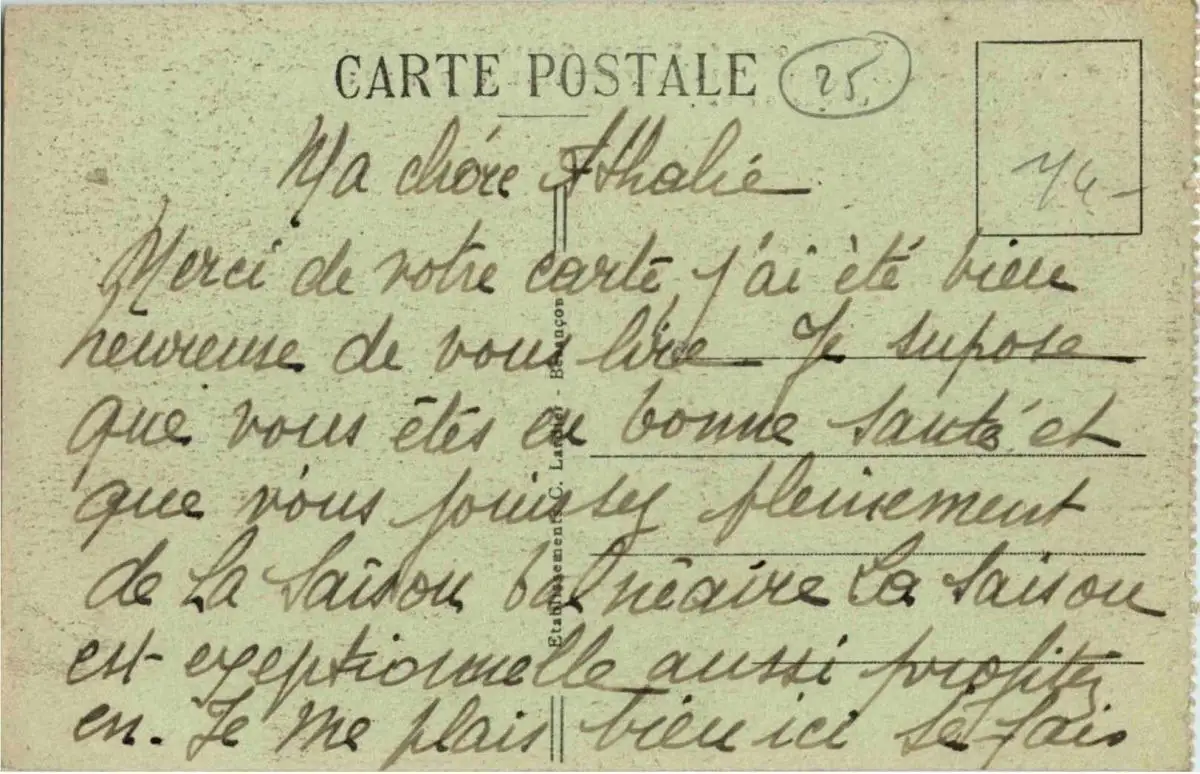 CARTE POSTALE 25
74-
Ma chère Athalie
Merci de votre carte, j'ai été bien
heureuse de vous lire. Je supose
que vous êtes en bonne santé et
que vous jouissez pleinement
de la saison balnéaire La saison
est exeptionnelle aussi profitez
en. Je me plais bien ici se fais
Etablissements C. Lardier - Besançon